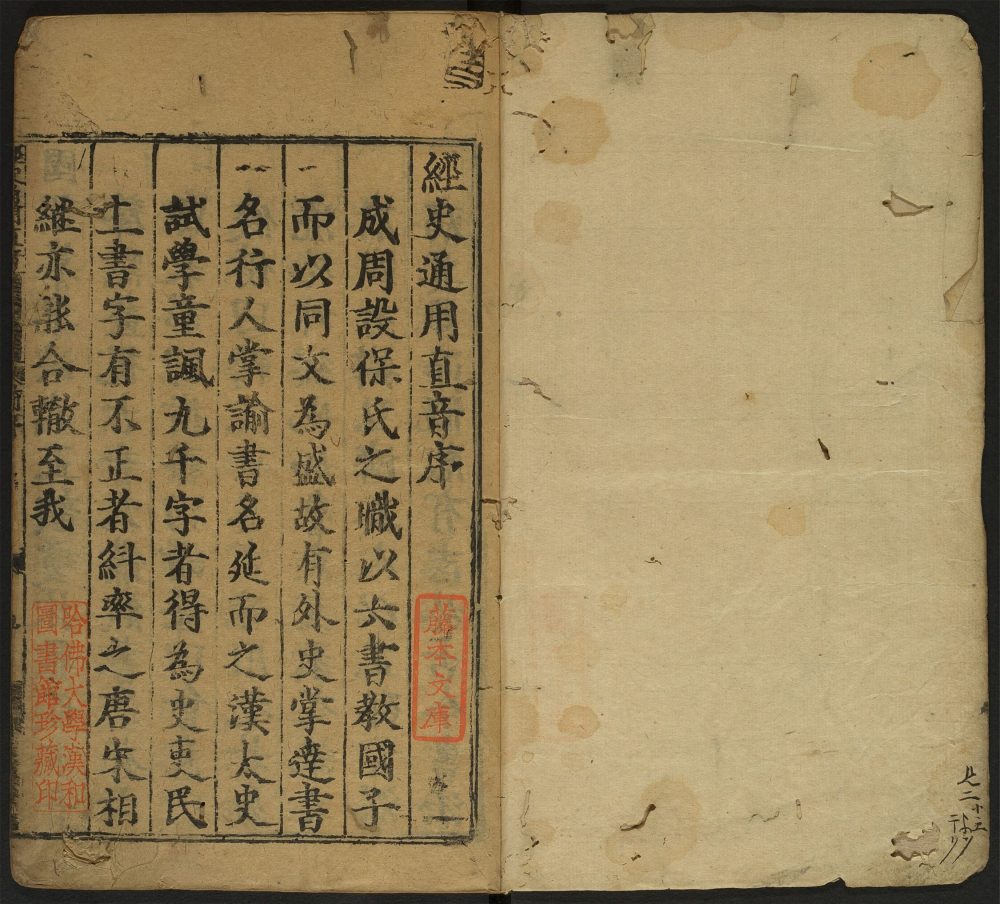 經史通用直音序
成周設保氏之職以六書教國子
而以同文為盛故有外史掌達書
名行人掌諭書名延而之漢太史
試學童諷九千字者得為史吏民
上書字有不正者糾率之唐宋相
継亦能合轍至我
藤本文庫
哈佛大學漢和
圖書館珍藏印